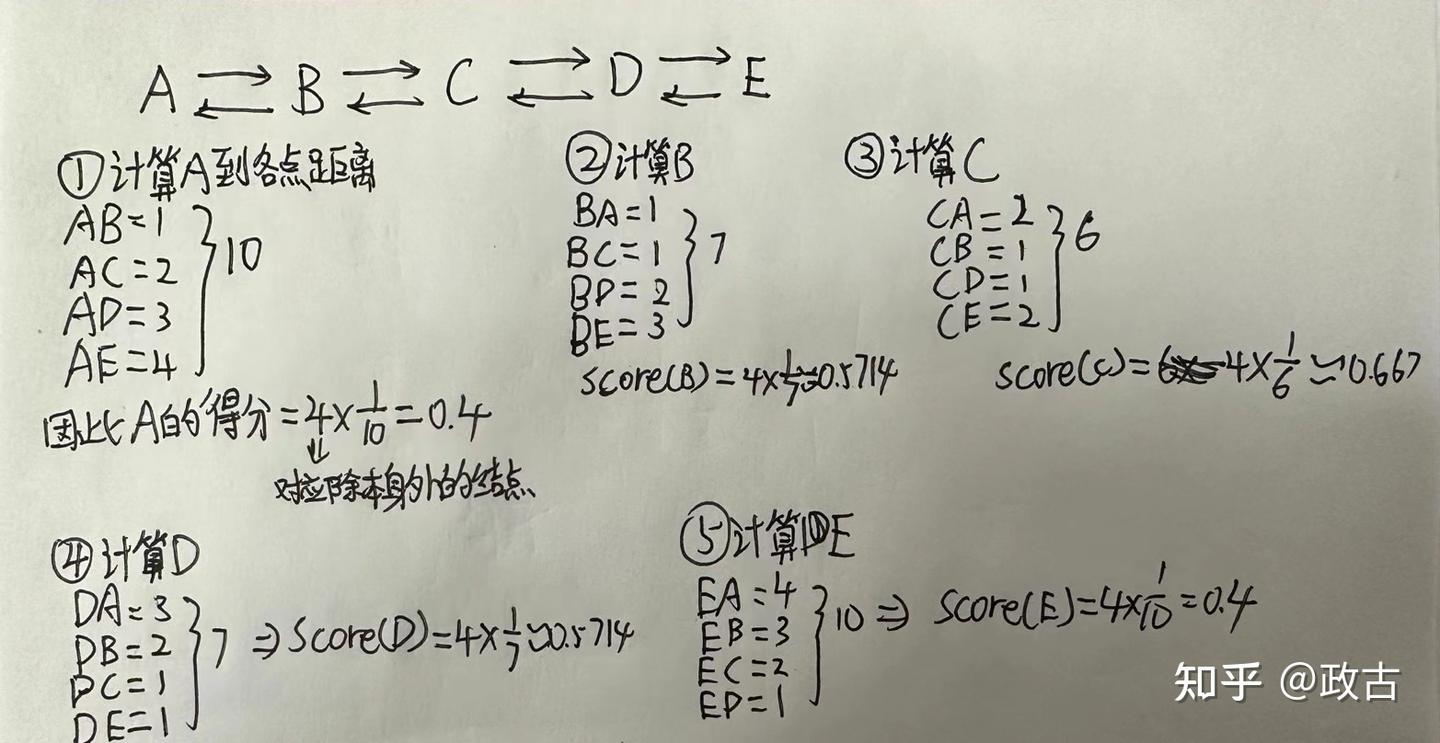 A ⇄ B ⇄ C ⇄ D ⇄ E
①计算A到各点距离
AB=1
AC=2
AD=3
AE=4
10
因此A的得分=4×1/10=0.4
对应除本身外的结点
②计算B
BA=1
BC=1
BD=2
BE=3
7
score(B)=4×1/7≈0.5714
③计算C
CA=2
CB=1
CD=1
CE=2
6
score(c)=4×1/6≈0.667
④计算D
DA=3
DB=2
DC=1
DE=1
7 ⇒ Score(D)=4×1/7≈0.5714
⑤计算E
EA=4
EB=3
EC=2
ED=1
10 ⇒ Score(E)=4×1/10=0.4
知乎 @政古